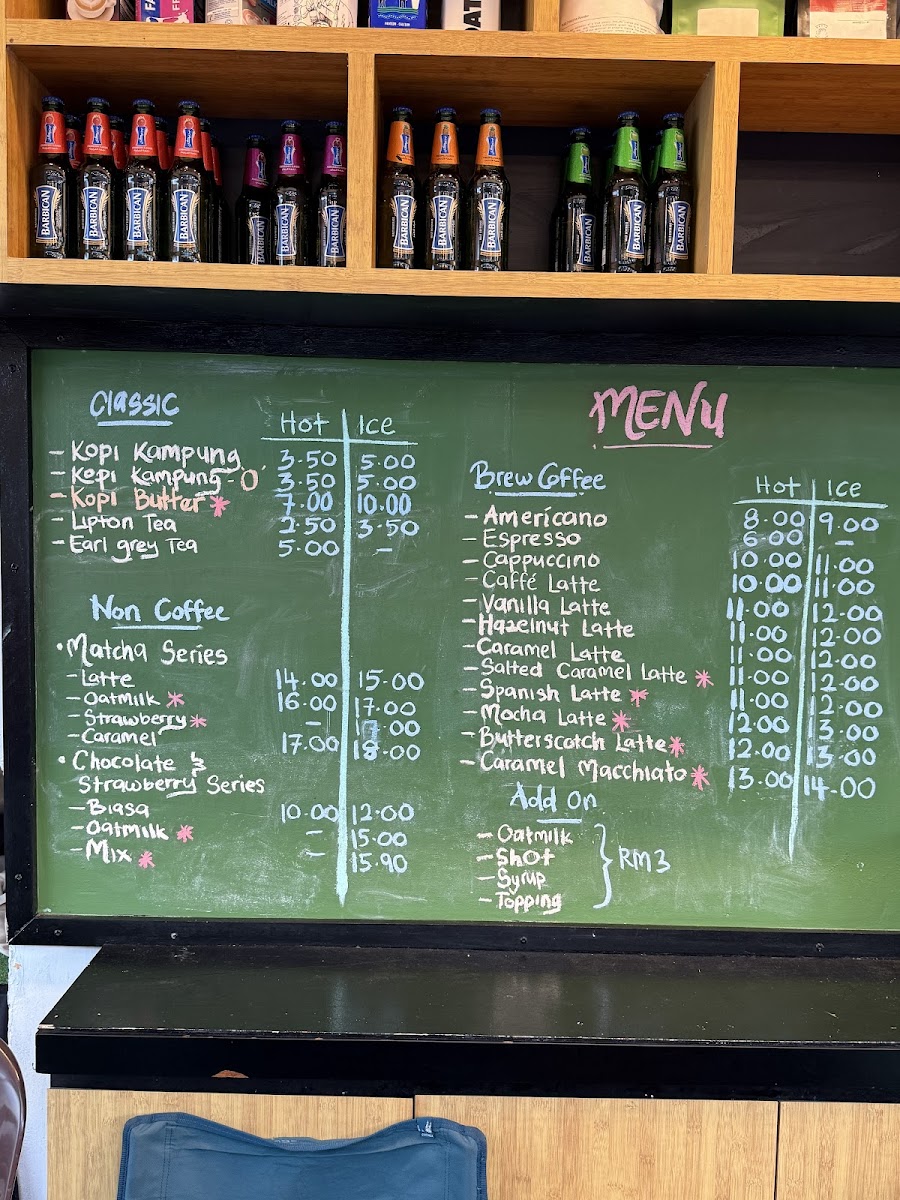 BARBICAN
BARBICAN
BARBICAN
BARBICAN
BARBICAN
BARBICAN
BARBICAN
BARBICAN
BARBICAN
BARBICAN
BARBICAN
BARBICAN
BARBICAN
MENU
Classic
Hot Ice
- Kopi Kampung 3.50 5.00
- Kopi Kampung - 'O' 3.50 5.00
- Kopi Butter * 7.00 10.00
- Lipton Tea 2.50 3.50
- Earl grey Tea 5.00 -
Non Coffee
• Matcha Series
- Latte 14.00 15.00
- Oatmilk * 16.00 17.00
- Strawberry * -
- Caramel 17.00 18.00
• Chocolate &
Strawberry Series
- Biasa 10.00 12.00
- Oatmilk * - 15.00
- Mix * - 15.90
Brew Coffee
Hot Ice
- Americano 8.00 9.00
- Espresso 6.00 -
- Cappuccino 10.00 11.00
- Caffé Latte 10.00 11.00
- Vanilla Latte 11.00 12.00
- Hazelnut Latte 11.00 12.00
- Caramel Latte 11.00 12.00
- Salted Caramel Latte * 11.00 12.00
- Spanish Latte * 11.00 12.00
- Mocha Latte * 12.00 13.00
- Butterscotch Latte * 12.00 13.00
- Caramel Macchiato * 13.00 14.00
Add On
- Oatmilk
- Shot
- Syrup
- Topping
} RM3